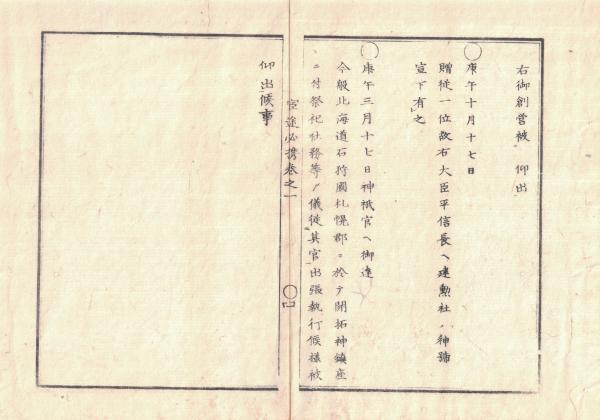 右御創営被 仰出
〇庚午十月十七日
贈従一位故右大臣平信長ヘ建勲社ノ神号
宣下有之
〇庚午三月十七日神祇官ヘ御達
今般北海道石狩国札幌郡ニ於テ開拓神鎮座
ニ付祭祀社務等ノ儀従其官出張執行候様被
宦途必携巻之一
〇四
仰出候事